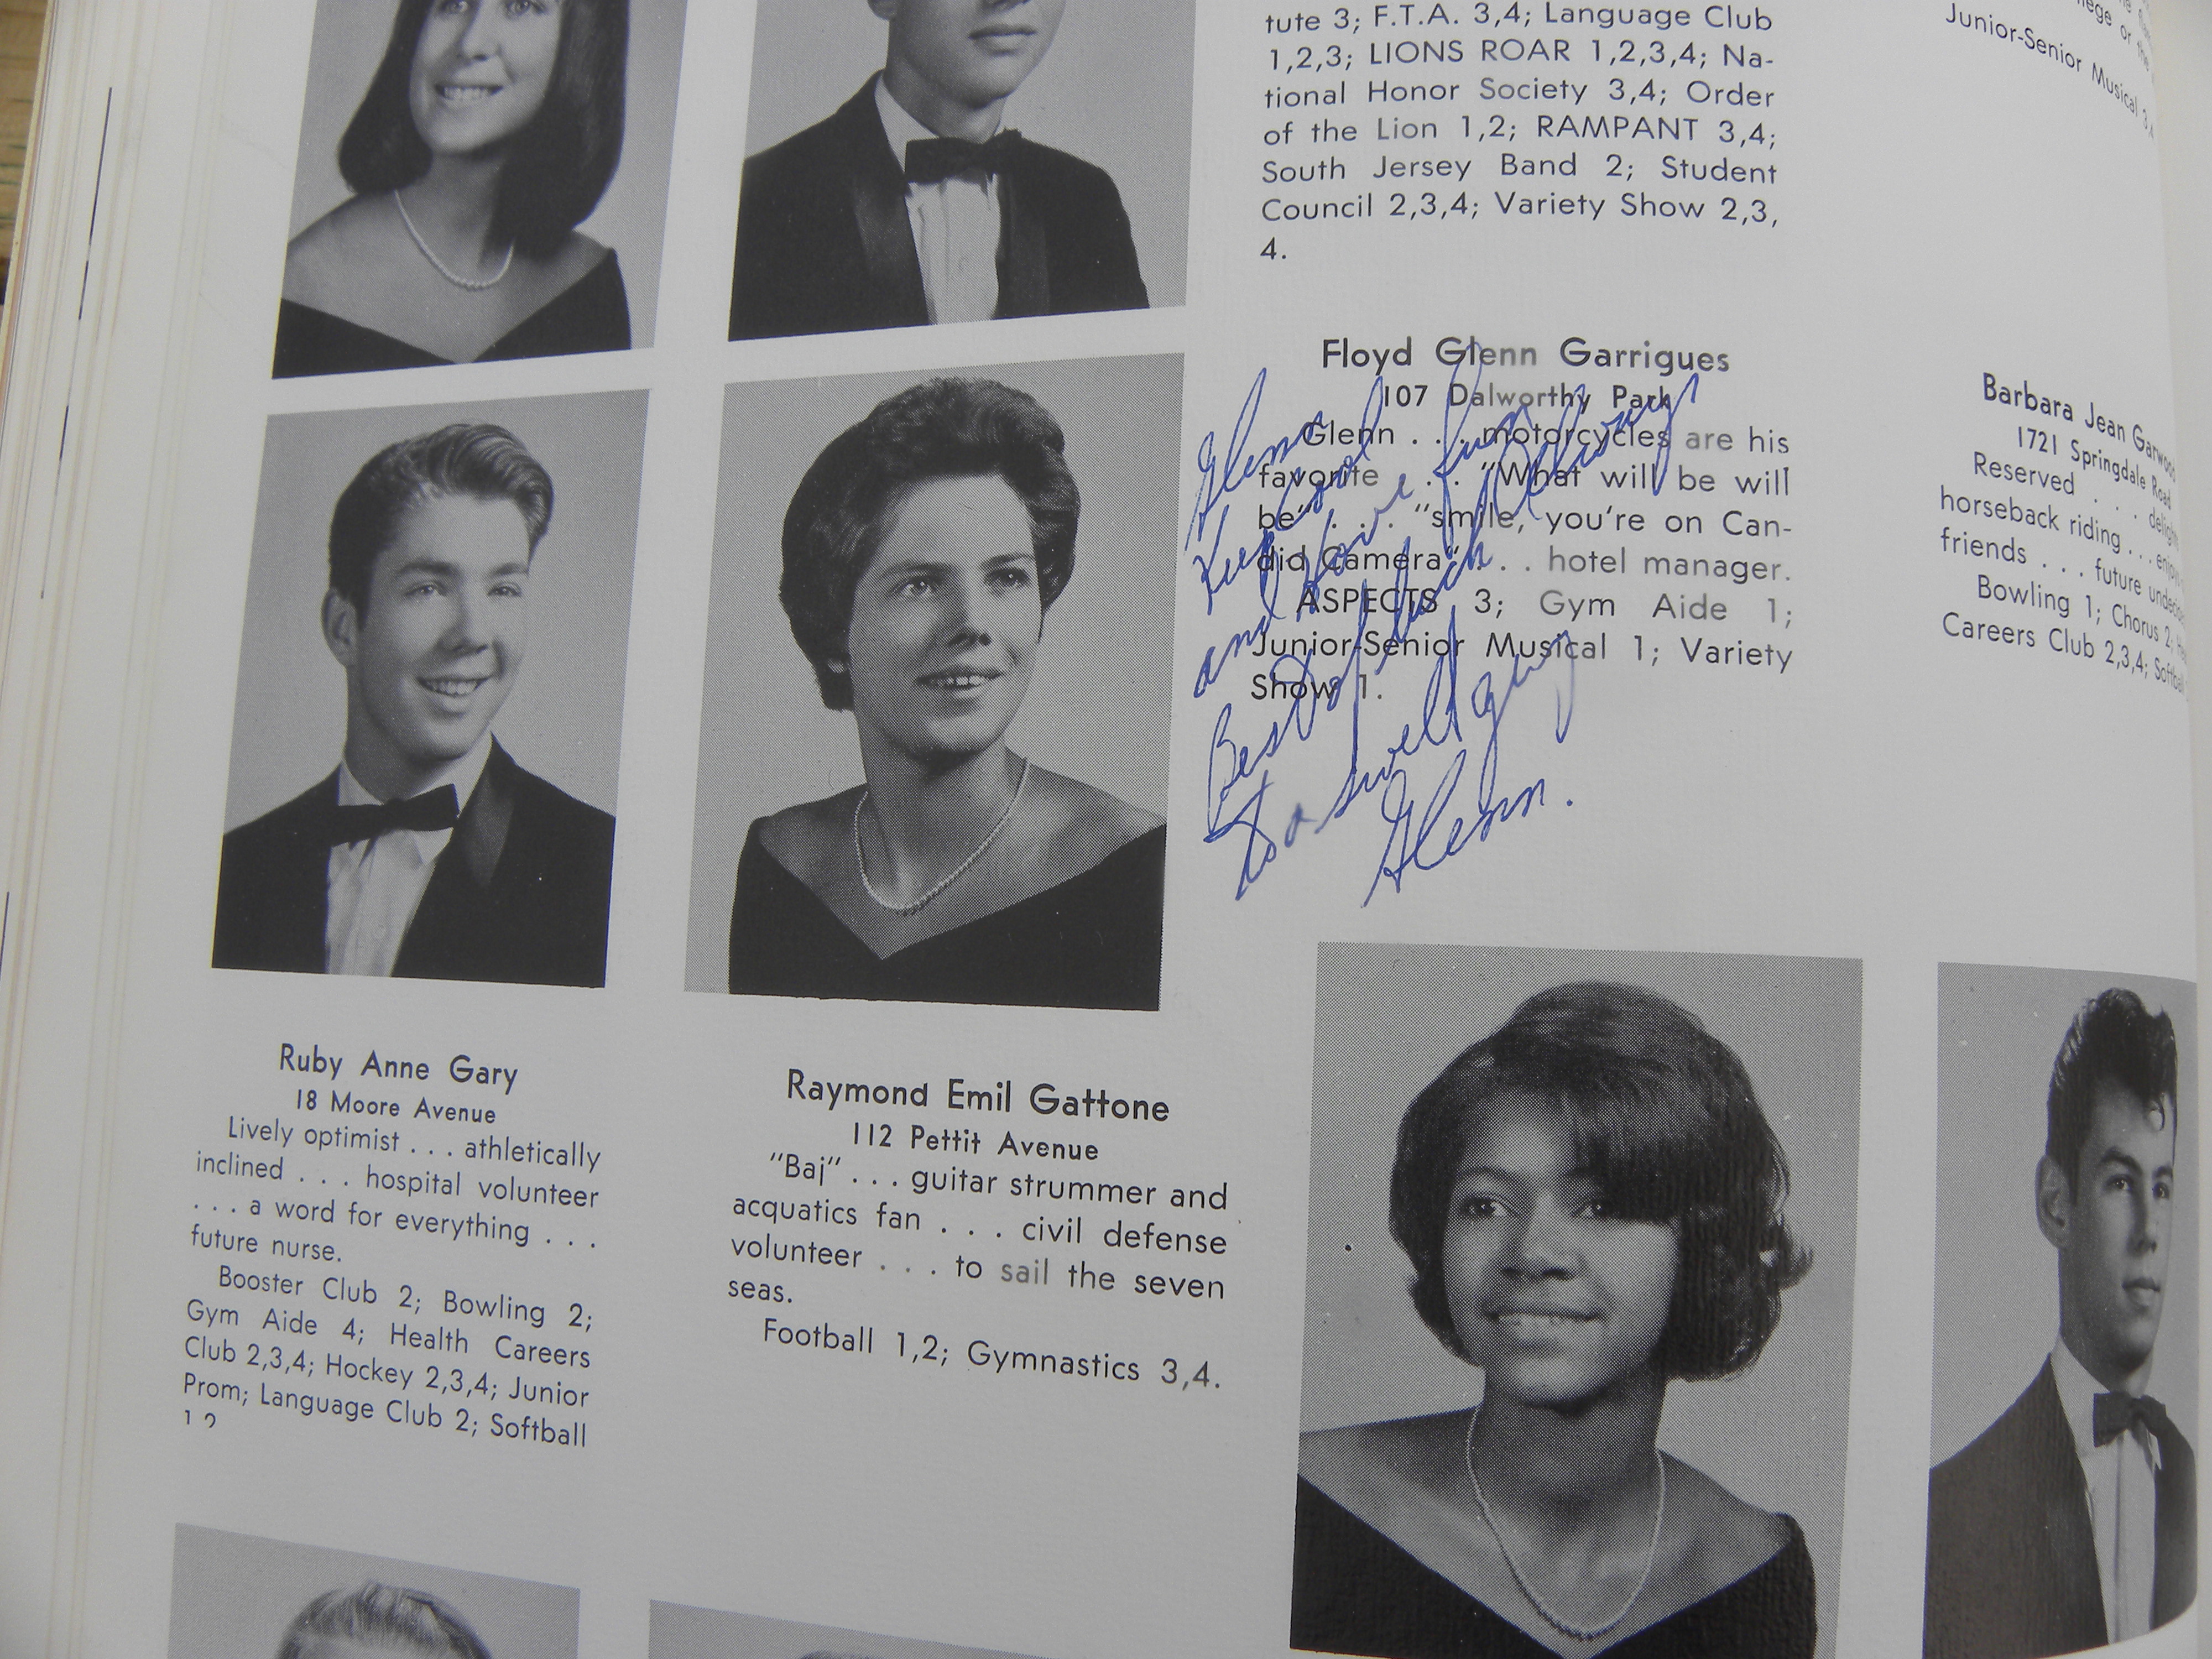 tute 3; F.T.A. 3,4; Language Club
1,2,3; LIONS ROAR 1,2,3,4; Na-
tional Honor Society 3,4; Order
of the Lion 1,2; RAMPANT 3,4;
South Jersey Band 2; Student
Council 2,3,4; Variety Show 2,3,
4.
Junior-Senior Musical 3,4
Floyd Glenn Garrigues
107 Dalworthy Park
Glenn . . . motorcycles are his
favorite . . . "What will be will
be" . . . "smile, you're on Can-
did Camera" . . . hotel manager.
ASPECTS 3; Gym Aide 1;
Junior-Senior Musical 1; Variety
Show 1.
Glenn
Keep Cool
and Have fun
Best of luck
To a swell guy
Glenn.
Barbara Jean Garwood
1721 Springdale Road
Reserved . . .
horseback riding . . .
friends . . . future
Bowling 1; Chorus 2;
Careers Club 2,3,4;
Ruby Anne Gary
18 Moore Avenue
Lively optimist . . . athletically
inclined . . . hospital volunteer
. . . a word for everything . . .
future nurse.
Booster Club 2; Bowling 2;
Gym Aide 4; Health Careers
Club 2,3,4; Hockey 2,3,4; Junior
Prom; Language Club 2; Softball
1 2
Raymond Emil Gattone
112 Pettit Avenue
"Baj" . . . guitar strummer and
acquatics fan . . . civil defense
volunteer . . . to sail the seven
seas.
Football 1,2; Gymnastics 3,4.